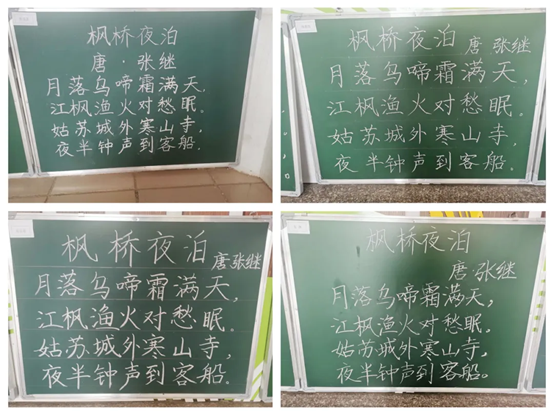 枫桥夜泊
唐·张继
月落乌啼霜满天,
江枫渔火对愁眠。
姑苏城外寒山寺,
夜半钟声到客船。
枫桥夜泊 唐 张继
月落乌啼霜满天,
江枫渔火对愁眠。
姑苏城外寒山寺,
夜半钟声到客船。
枫桥夜泊 唐 张继
月落乌啼霜满天,
江枫渔火对愁眠。
姑苏城外寒山寺,
夜半钟声到客船。
枫桥夜泊
唐·张继
月落乌啼霜满天,
江枫渔火对愁眠。
姑苏城外寒山寺,
夜半钟声到客船。